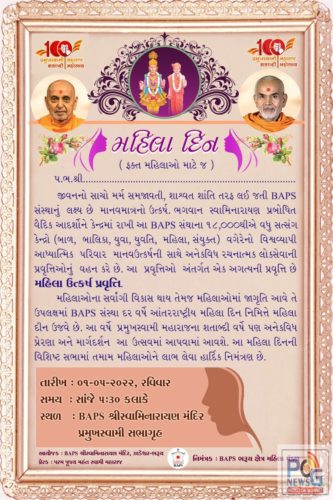 100
પ્રમુખસ્વામી મહારાજ
શતાબ્દી મહોત્સવ
100
પ્રમુખસ્વામી મહારાજ
શતાબ્દી મહોત્સવ
મહિલા દિન
( ફક્ત મહિલાઓ માટે જ )
પ.ભ.શ્રી
જીવનનો સાચો મર્મ સમજાવતી, શાશ્વત શાંતિ તરફ લઈ જતી BAPS
સંસ્થાનું લક્ષ્ય છે માનવમાત્રનો ઉત્કર્ષ. ભગવાન સ્વામિનારાયણ પ્રબોધિત
વૈદિક આદર્શોને કેન્દ્રમાં રાખી આ BAPS સંસ્થાના ૧૮,૦૦૦થીએ વધુ સત્સંગ
કેન્દ્રો (બાળ, બાલિકા, યુવા, યુવતિ, મહિલા, સંયુક્ત) વગેરેનો વિશ્વવ્યાપી
આધ્યાત્મિક પરિવાર માનવઉત્કર્ષની સાથે અનેકવિધ રચનાત્મક લોકસેવાની
પ્રવૃત્તિઓનું વહન કરે છે. આ પ્રવૃત્તિઓ અંતર્ગત એક અગત્યની પ્રવૃત્તિ છે
મહિલા ઉત્કર્ષ પ્રવૃત્તિ.
મહિલાઓના સર્વાંગી વિકાસ થાય તેમજ મહિલાઓમાં જાગૃતિ આવે તે
ઉપલક્ષમાં BAPS સંસ્થા દર વર્ષે આંતરરાષ્ટ્રીય મહિલા દિન નિમિત્તે મહિલા
દીન ઉજવે છે. આ વર્ષે પ્રમુખસ્વામી મહારાજના શતાબ્દી વર્ષે પણ અનેકવિધ
પ્રેરણા અને માર્ગદર્શન આ ઉત્સવમાં આપવામાં આવશે. આ મહિલા દિનની
વિશિષ્ટ સભામાં તમામ મહિલાઓને લાભ લેવા હાર્દિક નિમંત્રણ છે.
તારીખ : ૦૧-૦૫-૨૦૨૨, રવિવાર
સમય : સાંજે ૫:૩૦ કલાકે
સ્થળ : BAPS શ્રીસ્વામિનારાયણ મંદિર
પ્રમુખસ્વામી સભાગૃહ
આયોજક : BAPS શ્રીસ્વામિનારાયણ મંદિર,
પ્રેરક : પરમ પૂજ્ય મહંત સ્વામી મહારાજ
BAPS
નિમંત્રક : BAPS ભરૂચ ક્ષેત્ર મહિલા
NEWS